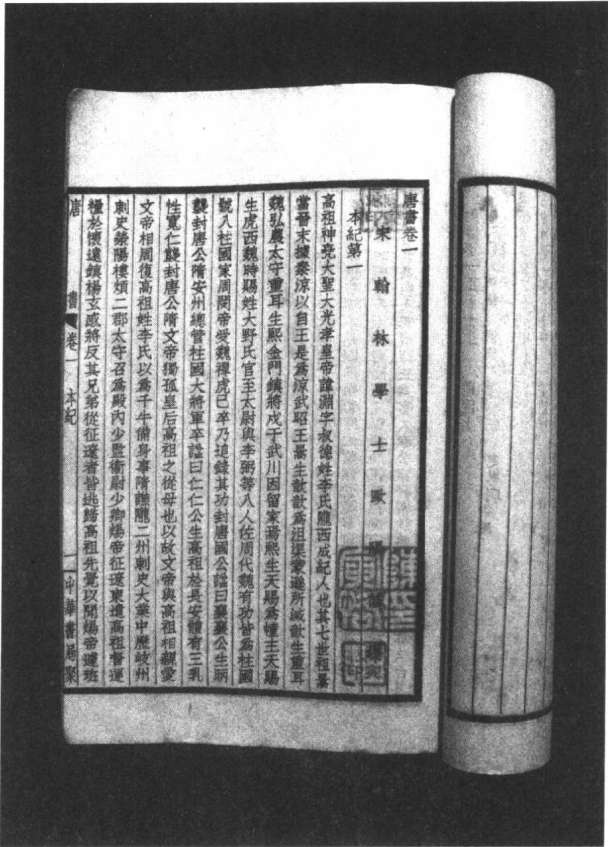 唐書卷一
宋翰林學士歐陽脩撰
本紀第一
高祖神堯大聖大光孝皇帝諱淵字叔德姓李氏隴西成紀人也其七世祖暠
當晉末據秦涼以自王是爲涼武昭王暠生歆歆爲沮渠蒙遜所滅歆生重耳
魏弘農太守重耳生熙金門鎮將戍于武川因留家焉熙生天賜爲幢主天賜
生虎西魏時賜姓大野氏官至太尉與李弼等八人佐周代魏有功皆爲柱國
號八柱國家周閔帝受魏禪虎已卒乃追錄其功封唐國公諡曰襄襄公生昞
襲封唐公隋安州總管柱國大將軍卒諡曰仁仁公生高祖於長安體有三乳
性寬仁襲封唐公隋文帝獨孤皇后高祖之從母也以故文帝與高祖相親愛
文帝相周復高祖姓李氏以爲千牛備身事隋譙隴二州刺史大業中歷岐州
刺史滎陽樓煩二郡太守召爲殿內少監衞尉少卿煬帝征遼東遣高祖督運
糧於懷遠鎮楊玄感將反其兄弟從征遼者皆逃歸高祖先覺以聞煬帝遽班
唐書 卷一 本紀 中華書局聚